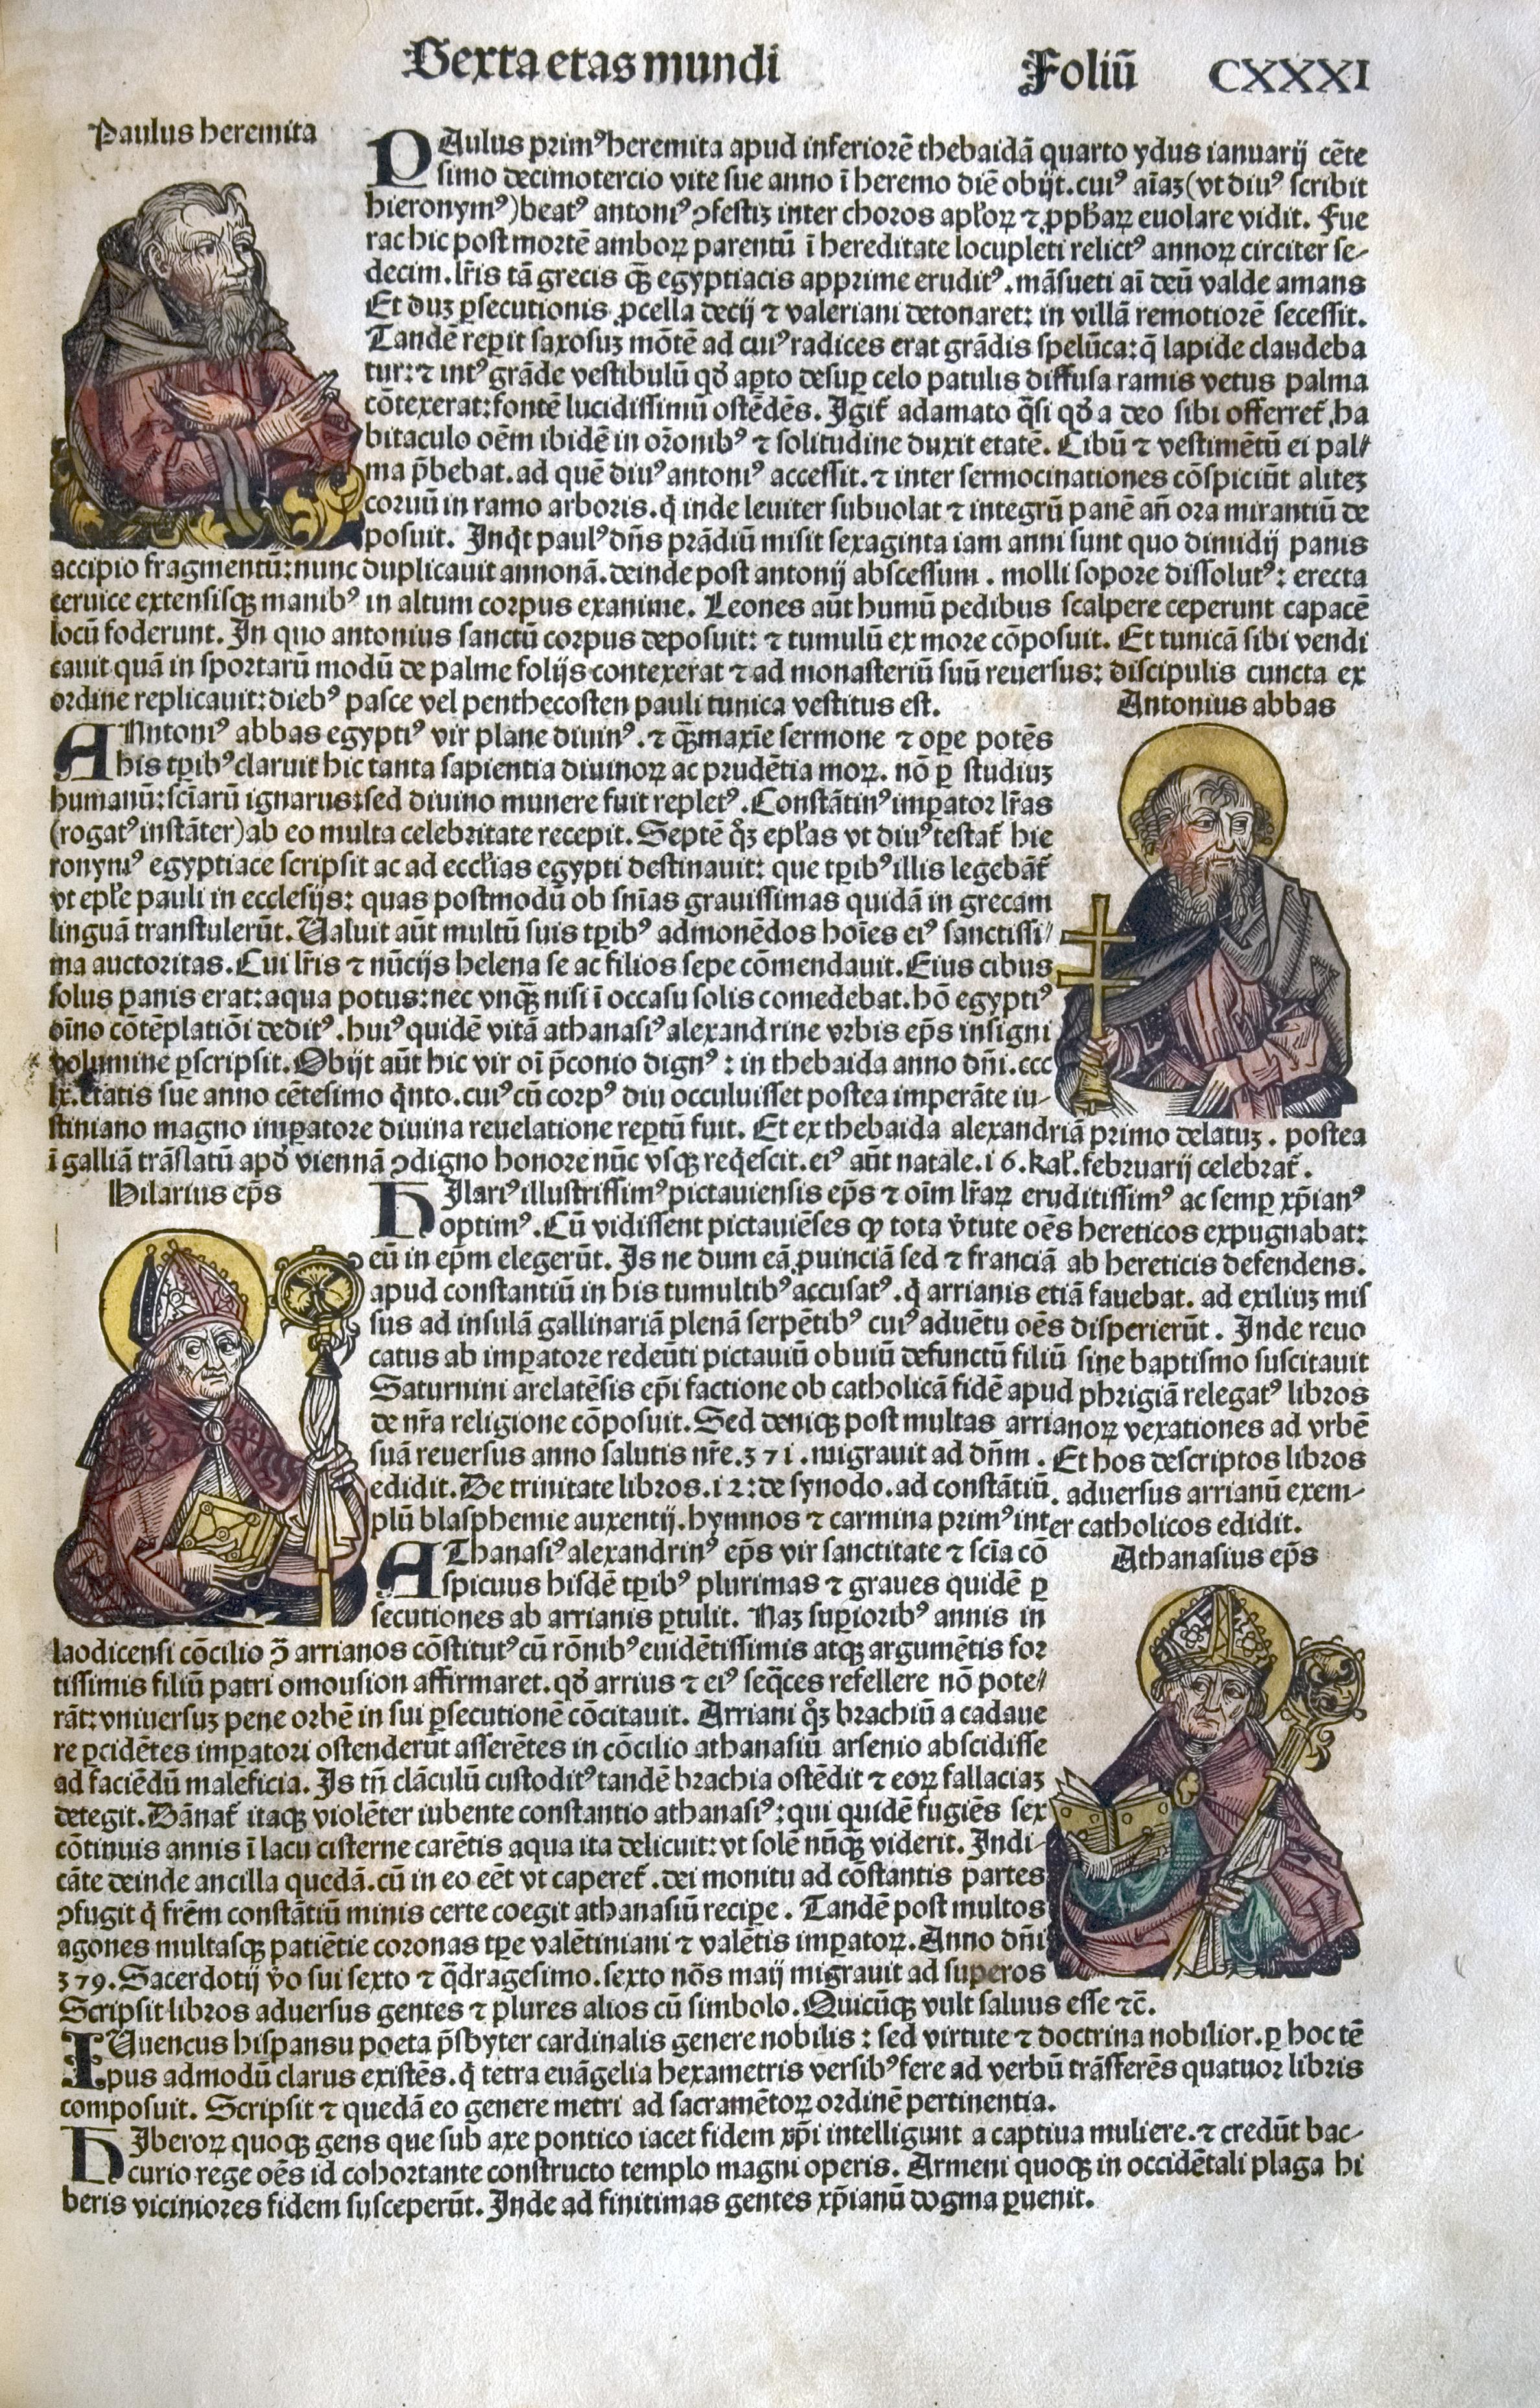 Sexta etas mundi Foliū CXXXI
Paulus heremita
PAulus primꝰ heremita apud inferiorē thebaidā quarto ydus ianuarij cēte
simo decimotercio vite sue anno ī heremo diē obijt. cuiꝰ aīaꝫ (vt diuꝰ scribit
hieronymꝰ) beatꝰ antoniꝰ ꝯfestiꝫ inter choros apl'oꝝ ⁊ ꝓph'aꝝ euolare vidit. Fue
rac hic post mortē amboꝝ parentū ī hereditate locupleti relictꝰ annoꝝ circiter se-
decim. lr̄is tā grecis qꝫ̄ egyptiacis apprime eruditꝰ. māsueti aī deū valde amans
Et duꝫ ꝑsecutionis ꝓcella decij ⁊ valeriani detonaret: in villā remotiorē secessit.
Tandē reꝑit saxosuꝫ mōtē ad cuiꝰ radices erat grādis spelūca: q̄ lapide claudeba
tur: ⁊ intꝰ grāde vestibulū qd' aꝑto desuꝑ celo patulis diffusa ramis vetus palma
cōtexerat: fontē lucidissimū ostēdēs. Igit᷑ adamato q̄si qd' a deo sibi offerret᷑, ha
bitaculo oēm ibidē in or̄onibꝰ ⁊ solitudine duxit etatē. Cibū ⁊ vestimētū ei pal-
ma p̄bebat. ad quē diuꝰ antoniꝰ accessit. ⁊ inter sermocinationes cōspiciūt aliteꝫ
coruū in ramo arboris. q̇ inde leuiter subuolat ⁊ integrū panē añ ora mirantiū de
posuit. Inq̇t paulꝰ dn̄s prādiū misit sexaginta iam anni sunt quo dimidij panis
accipio fragmentū: nunc duplicauit annonā. deinde post antonij abscessum. molli sopore dissolutꝰ: erecta
ceruice extensisqꝫ manibꝰ in altum corpus exanime. Leones aūt humū pedibus scalpere ceperunt capacē
locū foderunt. In quo antonius sanctū corpus deposuit: ⁊ tumulū ex more cōposuit. Et tunicā sibi vendi
cauit quā in sportarū modū de palme folijs contexerat ⁊ ad monasteriū suū reuersus: discipulis cuncta ex
ordine replicauit: diebꝰ pasce vel penthecosten pauli tunica vestitus est.
Antonius abbas
ANtoniꝰ abbas egyptiꝰ vir plane diuinꝰ. ⁊ qꝫ̄ maxīe sermone ⁊ oꝑe potēs
his tꝑibꝰ claruit hic tanta sapientia diuinoꝝ ac prudētia moꝝ. nō ꝑ studiuꝫ
humanū: sciarū ignarus: sed diuino munere fuit repletꝰ. Constātinꝰ imꝑator lr̄as
(rogatꝰ instāter) ab eo multa celebritate recepit. Septē q̊ꝫ epl'as vt diuꝰ testat᷑ hie
ronymꝰ egyptiace scripsit ac ad eccl'ias egypti destinauit: que tꝑibꝰ illis legebāt᷑
vt epl'e pauli in ecclesijs: quas postmodū ob sn̄ias grauissimas quidā in grecam
linguā transtulerūt. Ualuit aūt multū suis tꝑibꝰ admonēdos hoīes eiꝰ sanctissi-
ma auctoritas. Cui lr̄is ⁊ nūcijs helena se ac filios sepe cōmendauit. Eius cibus
solus panis erat: aqua potus: nec vnqꝫ̄ nisi ī occasu solis comedebat. hō egyptiꝰ
oīno cōtēplatiōi deditꝰ. huiꝰ quidē vitā athanasiꝰ alexandrine vrbis ep̄s insigni
volumine ꝑscripsit. Obijt aūt hic vir oī p̄conio dignꝰ: in thebaida anno dn̄i. ccc
lx. etatis sue anno cētesimo q̇nto. cuiꝰ cū corpꝰ diu occuluisset postea imperāte iu-
stiniano magno imꝑatore diuina reuelatione reꝑtū fuit. Et ex thebaida alexandriā primo delatuꝫ. postea
ī galliā trāslatū apd' viennā ꝯdigno honore nūc vsqꝫ req̇escit. eiꝰ aūt natale. 16. kal'. februarij celebrat᷑.
Hilarius ep̄s
HIlariꝰ illustrissimꝰ pictauiensis ep̄s ⁊ oīm lr̄aꝝ eruditissimꝰ ac semꝑ xp̄ianꝰ
optimꝰ. Cū vidissent pictauiēses ꝙ tota v̇tute oēs hereticos expugnabat:
eū in ep̄m elegerūt. Is ne dum eā ꝓuinciā sed ⁊ franciā ab hereticis defendens.
apud constantiū in his tumultibꝰ accusatꝰ. q̇ arrianis etiā fauebat. ad exiliuꝫ mis
sus ad insulā gallinariā plenā serpētibꝰ cuiꝰ aduētu oēs disperierūt. Inde reuo
catus ab imꝑatore redeūti pictauiū obuiū defunctū filiū sine baptismo suscitauit
Saturnini arelatēsis ep̄i factione ob catholicā fidē apud phrigiā relegatꝰ libros
de nr̄a religione cōposuit. Sed deniqꝫ post multas arrianoꝝ vexationes ad vrbē
suā reuersus anno salutis nr̄e. 371. migrauit ad dn̄m. Et hos descriptos libros
edidit. De trinitate libros. 12: de synodo. ad constātiū. aduersus arrianū exem-
plū blasphemie auxentij. hymnos ⁊ carmina primꝰ inter catholicos edidit.
Athanasius ep̄s
AThanasiꝰ alexandrinꝰ ep̄s vir sanctitate ⁊ scīa cō
spicuus hisdē tꝑibꝰ plurimas ⁊ graues quidē ꝑ
secutiones ab arrianis ꝑtulit. Naꝫ suꝑioribꝰ annis in
laodicensi cōcilio ꝯ̄ arrianos cōstitutꝰ cū rōnibꝰ euidētissimis atqꝫ argumētis for
tissimis filiū patri omousion affirmaret. qd' arrius ⁊ eiꝰ seq̄ces refellere nō pote-
rāt: vniuersuꝫ pene orbē in sui ꝑsecutionē cōcitauit. Arriani q̊ꝫ brachiū a cadaue
re ꝑcidētes imꝑatori ostenderūt asserētes in cōcilio athanasiū arsenio abscidisse
ad faciēdū maleficia. Is tn̄ clāculū custoditꝰ tandē brachia ostēdit ⁊ eoꝝ fallaciaꝫ
detegit. Dānat᷑ itaqꝫ violēter iubente constantio athanasiꝰ: qui quidē fugiēs sex
cōtinuis annis ī lacu cisterne carētis aqua ita delicuit: vt solē nūqꝫ viderit. Indi-
cāte deinde ancilla quedā. cū in eo eēt vt caperet᷑. dei monitu ad cōstantis partes
ꝯfugit q̇ fr̄em constātiū minis certe coegit athanasiū reciꝑe. Tandē post multos
agones multasqꝫ patiētie coronas tꝑe valētiniani ⁊ valētis imꝑatoꝝ. Anno dn̄i
379. Sacerdotij v̇o sui sexto ⁊ q̄dragesimo. sexto nōs maij migrauit ad superos
Scripsit libros aduersus gentes ⁊ plures alios cū simbolo. Quicūqꝫ vult saluus esse ⁊c̄.
IUuencus hispansu poeta p̄sbyter cardinalis genere nobilis: sed virtute ⁊ doctrina nobilior. ꝑ hoc tē
pus admodū clarus existēs. q̇ tetra euāgelia hexametris versibꝰ fere ad verbū trāsferēs quatuor libris
composuit. Scripsit ⁊ quedā eo genere metri ad sacramētoꝝ ordinē pertinentia.
HIberoꝝ quoqꝫ gens que sub axe pontico iacet fidem xp̄i intelligunt a captiua muliere. ⁊ credūt bac-
curio rege oēs id cohortante constructo templo magni operis. Armeni quoqꝫ in occidētali plaga hi
beris viciniores fidem susceperūt. Inde ad finitimas gentes xp̄ianū dogma ꝑuenit.